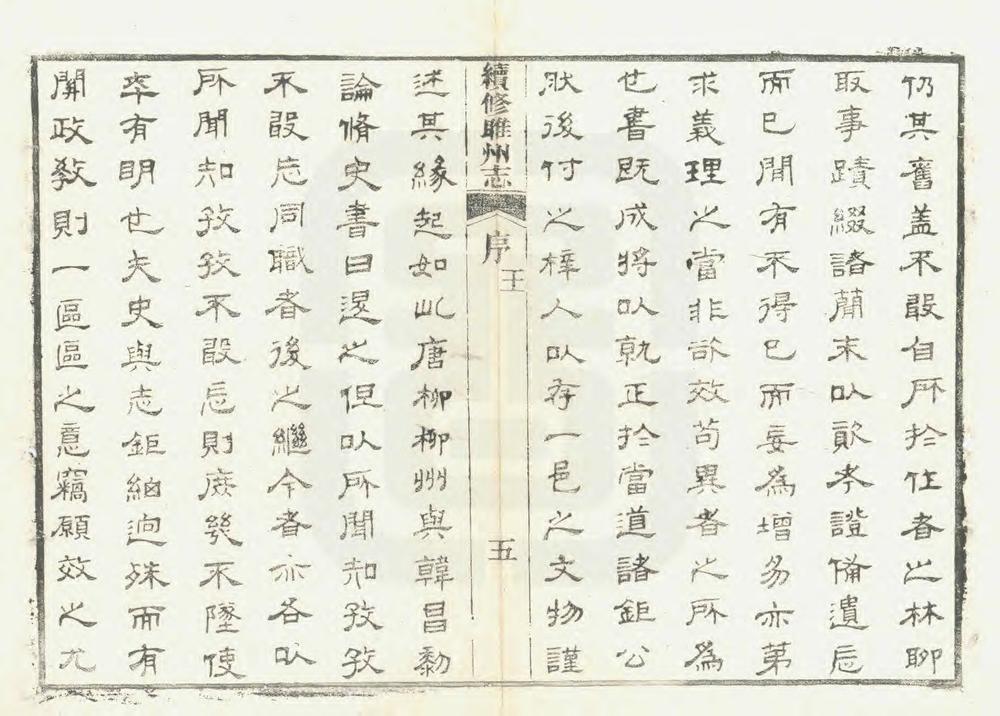 仍其舊蓋不敢自所於仕者之林聊
取事蹟綴諸蕑末以歕考證備遺忘
而已間有不得已而妄為增易亦第
求義理之當非欲效苟異者之所為
也書既成將以執正於當道諸鉅公
肰後付之梓人以存一邑之文物謹
續修睢州志
序
王
五
述其緣起如此唐柳柳州與韓昌黎
論脩史書曰退之但以所聞知孜孜
不敢忘同職者後之繼今者亦各以
所聞知孜孜不敢忘則庶幾不墜使
卒有明也夫史與志鉅細迥殊而有
關政教則一區區之意竊願效之尤